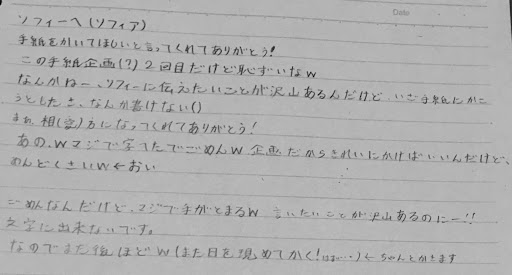 Date
ソフィーへ(ソフィア)
手紙をかいてほしいと言ってくれてありがとう!
この手紙企画(?)2回目だけど恥ずいなw
なんかねー、ソフィーに伝えたいことが沢山あるんだけど、いざ手紙にかこ
うとしたら、なんか書けない()
まぁ、相(宴)方になってくれてありがとう!
あの、wマジで字へたでごめんw 企画だからきれいにかけばいいんだけど、
めんどくさいw←おい
ごめんなんだけど、マジで手がとまるw 言いたいことが沢山あるのにー!!
文字に出来ないです。
なのでまた後ほどw(また日を改めてかく!はは…)←ちゃんとかきます